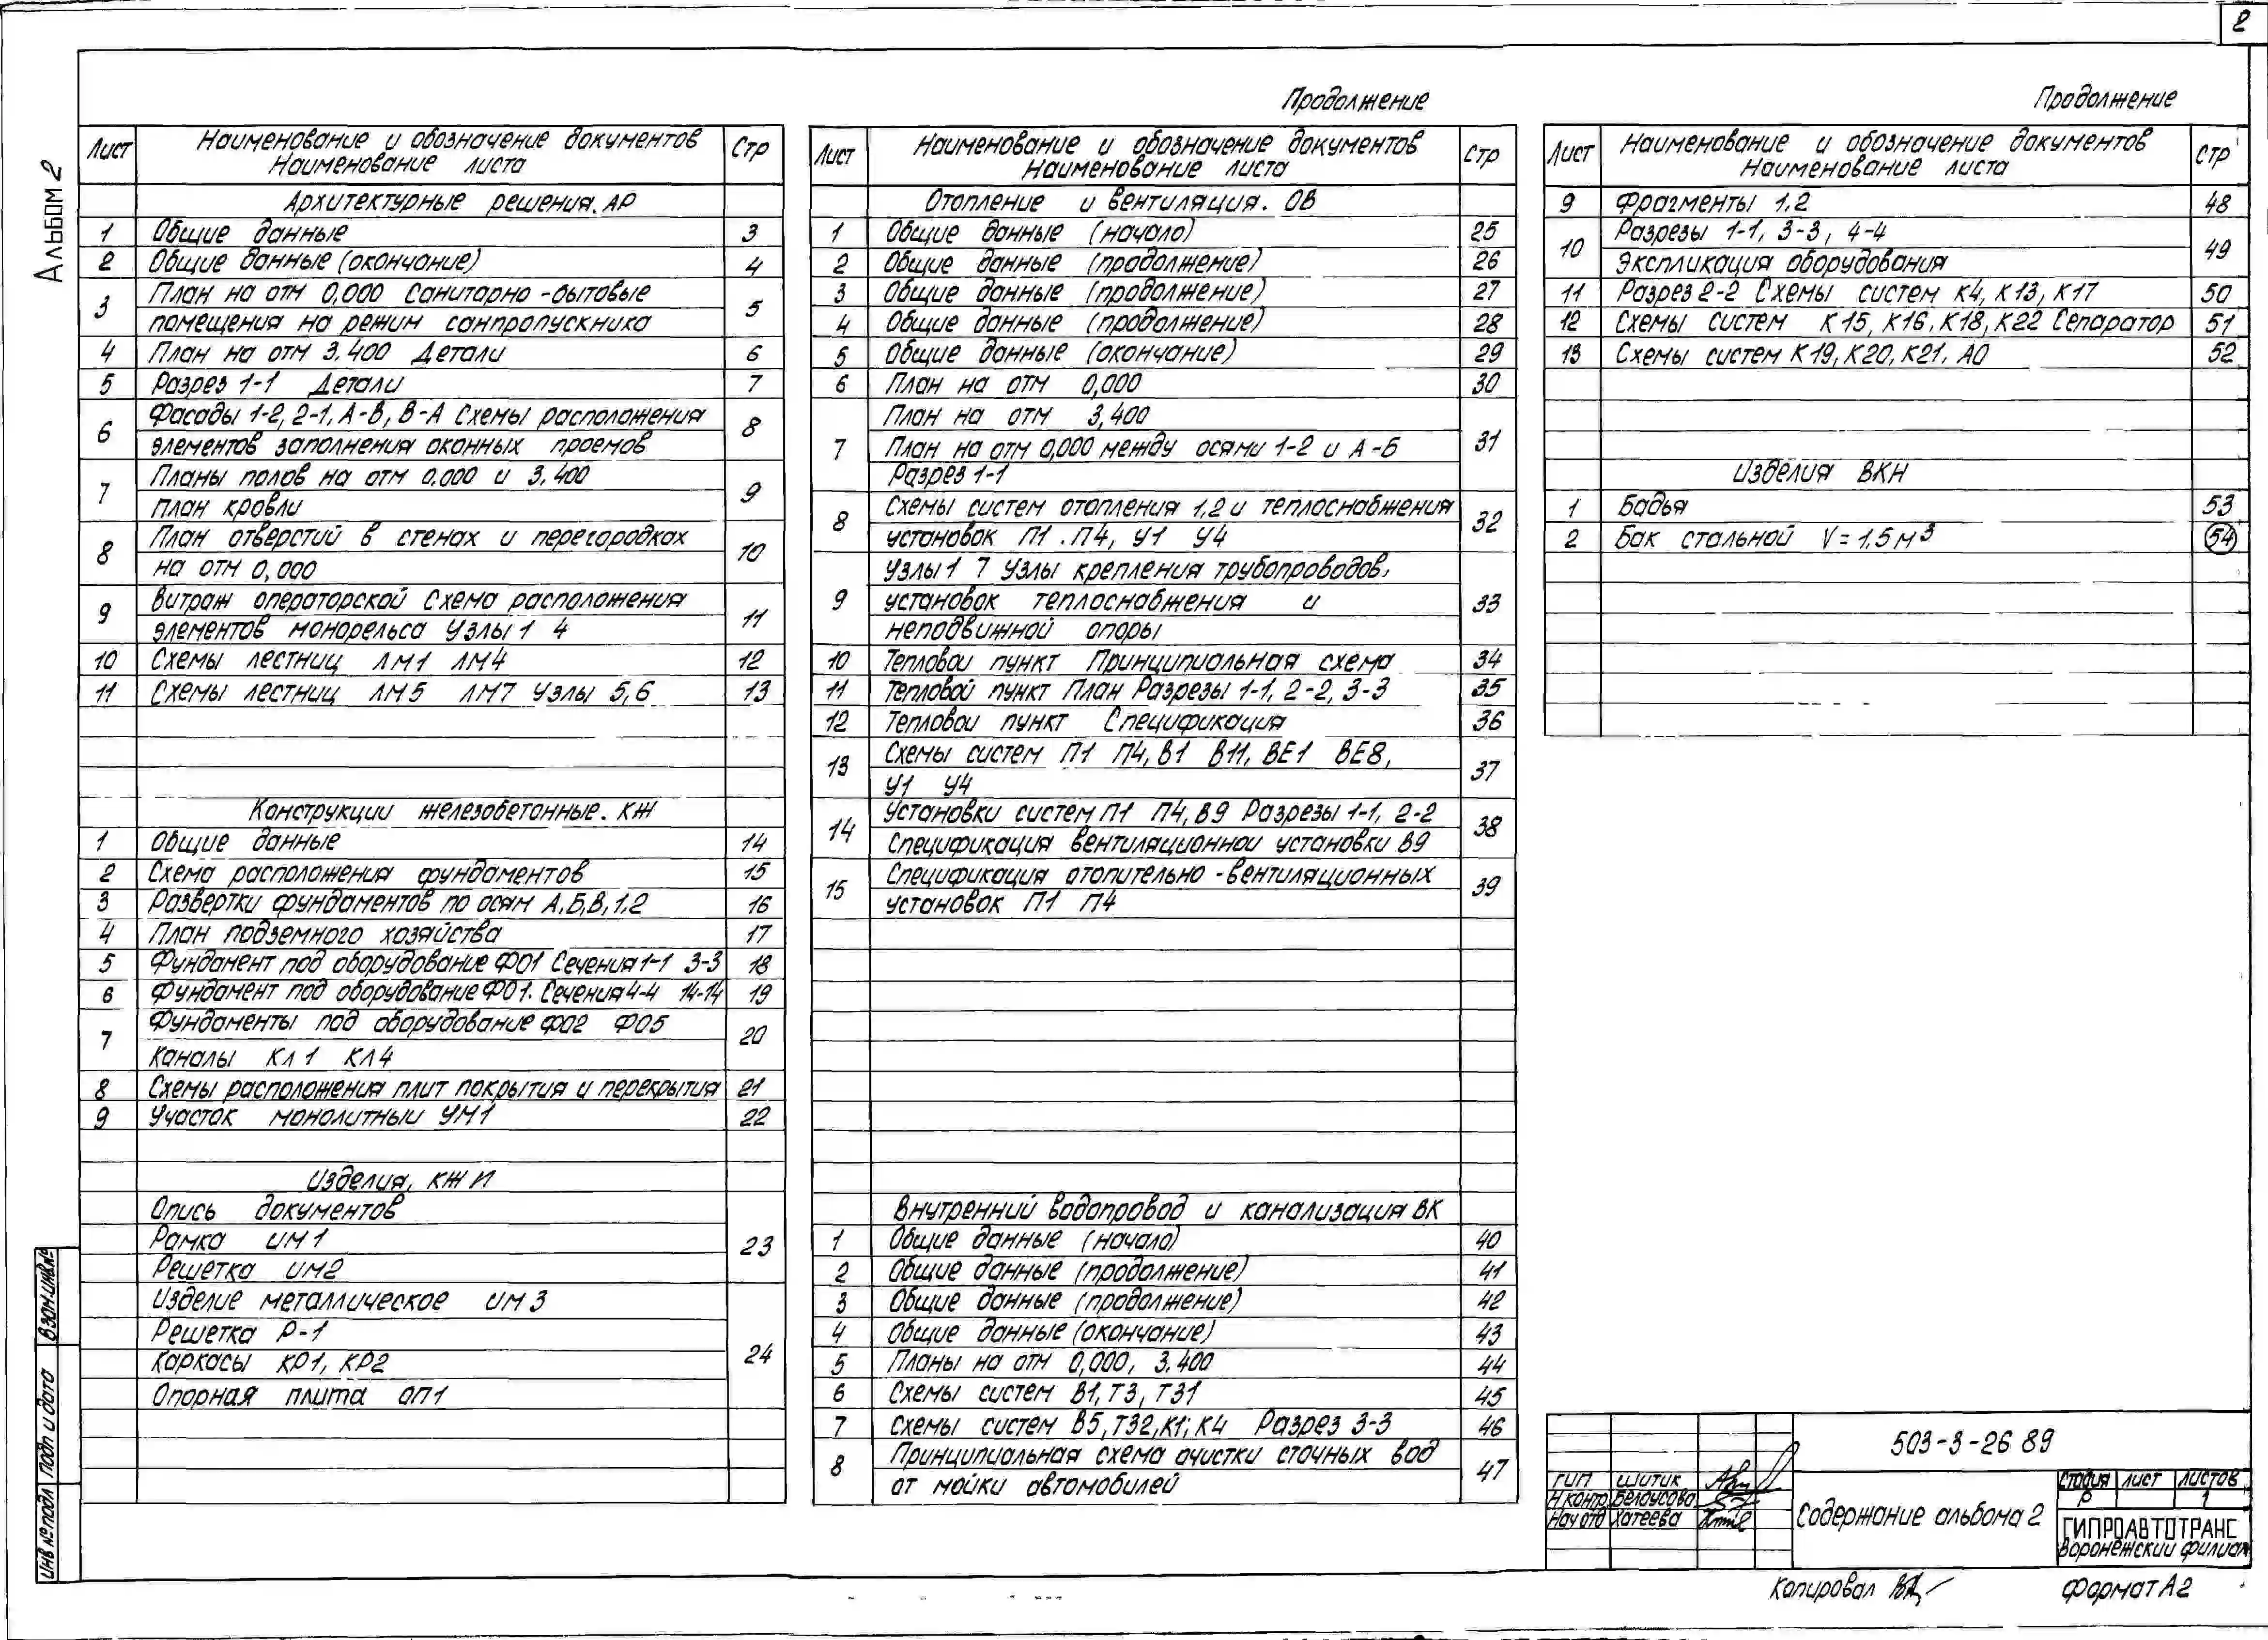 2
Альбом 2
Лист Наименование и обозначение документов Стр
Наименование листа
Архитектурные решения. АР
1 Общие данные 3
2 Общие данные (окончание) 4
3 План на отм 0,000 Санитарно-бытовые 5
помещения на режим санпропускника
4 План на отм 3.400 Детали 6
5 Разрез 1-1 Детали 7
6 Фасады 1-2, 2-1, А-В, В-А Схемы расположения 8
элементов заполнения оконных проемов
7 Планы полов на отм 0.000 и 3.400 9
план кровли
8 План отверстий в стенах и перегородках 10
на отм 0,000
9 Витраж операторской Схема расположения 11
элементов монорельса Узлы 1 4
10 Схемы лестниц ЛМ1 ЛМ4 12
11 Схемы лестниц ЛМ5 ЛМ7 Узлы 5,6 13
Конструкции железобетонные. КЖ
1 Общие данные 14
2 Схема расположения фундаментов 15
3 Развертки фундаментов по осям А,Б,В,1,2 16
4 План подземного хозяйства 17
5 Фундамент под оборудование ФО1 Сечения 1-1 3-3 18
6 Фундамент под оборудование ФО1. Сечения 4-4 14-14 19
7 Фундаменты под оборудование ФО2 ФО5 20
Каналы КЛ1 КЛ4
8 Схемы расположения плит покрытия и перекрытия 21
9 Участок монолитный УМ1 22
Изделия, КЖИ
Опись документов
Рамка ИМ1 23
Решетка ИМ2
Изделие металлическое ИМ3
Решетка Р-1
Каркасы КР1, КР2 24
Опорная плита ОП1
Продолжение
Лист Наименование и обозначение документов Стр
Наименование листа
Отопление и вентиляция. ОВ
1 Общие данные (начало) 25
2 Общие данные (продолжение) 26
3 Общие данные (продолжение) 27
4 Общие данные (продолжение) 28
5 Общие данные (окончание) 29
6 План на отм 0,000 30
План на отм 3,400
7 План на отм 0,000 между осями 1-2 и А-Б 31
Разрез 1-1
8 Схемы систем отопления 1,2 и теплоснабжения 32
установок П1 . П4, У1 У4
Узлы 1 7 Узлы крепления трубопроводов,
9 установок теплоснабжения и 33
неподвижной опоры
10 Тепловой пункт Принципиальная схема 34
11 Тепловой пункт План Разрезы 1-1, 2-2, 3-3 35
12 Тепловой пункт Спецификация 36
13 Схемы систем П1 П4, В1 В11, ВЕ1 ВЕ8, 37
У1 У4
14 Установки систем П1 П4, В9 Разрезы 1-1, 2-2 38
Спецификация вентиляционной установки В9
15 Спецификация отопительно-вентиляционных 39
установок П1 П4
Внутренний водопровод и канализация ВК
1 Общие данные (начало) 40
2 Общие данные (продолжение) 41
3 Общие данные (продолжение) 42
4 Общие данные (окончание) 43
5 Планы на отм 0,000, 3.400 44
6 Схемы систем В1, Т3, Т31 45
7 Схемы систем В5, Т32, К1, К4 Разрез 3-3 46
8 Принципиальная схема очистки сточных вод 47
от мойки автомобилей
Продолжение
Лист Наименование и обозначение документов Стр
Наименование листа
9 Фрагменты 1,2 48
10 Разрезы 1-1, 3-3, 4-4 49
Экспликация оборудования
11 Разрез 2-2 Схемы систем К4, К13, К17 50
12 Схемы систем К15, К16, К18, К22 Сепаратор 51
13 Схемы систем К19, К20, К21, А0 52
Изделия ВКН
1 Бадья 53
2 Бак стальной V = 1,5 м³ 54
503-3-26 89
ГИП Шитик
Н контр Белоусова
Нач отд Хатеева
Содержание альбома 2
Стадия Лист Листов
Р 1
ГИПРОАВТОТРАНС
Воронежский филиал
Копировал
Формат А2
Взам.инв.№
Подп и дата
Инв № подл